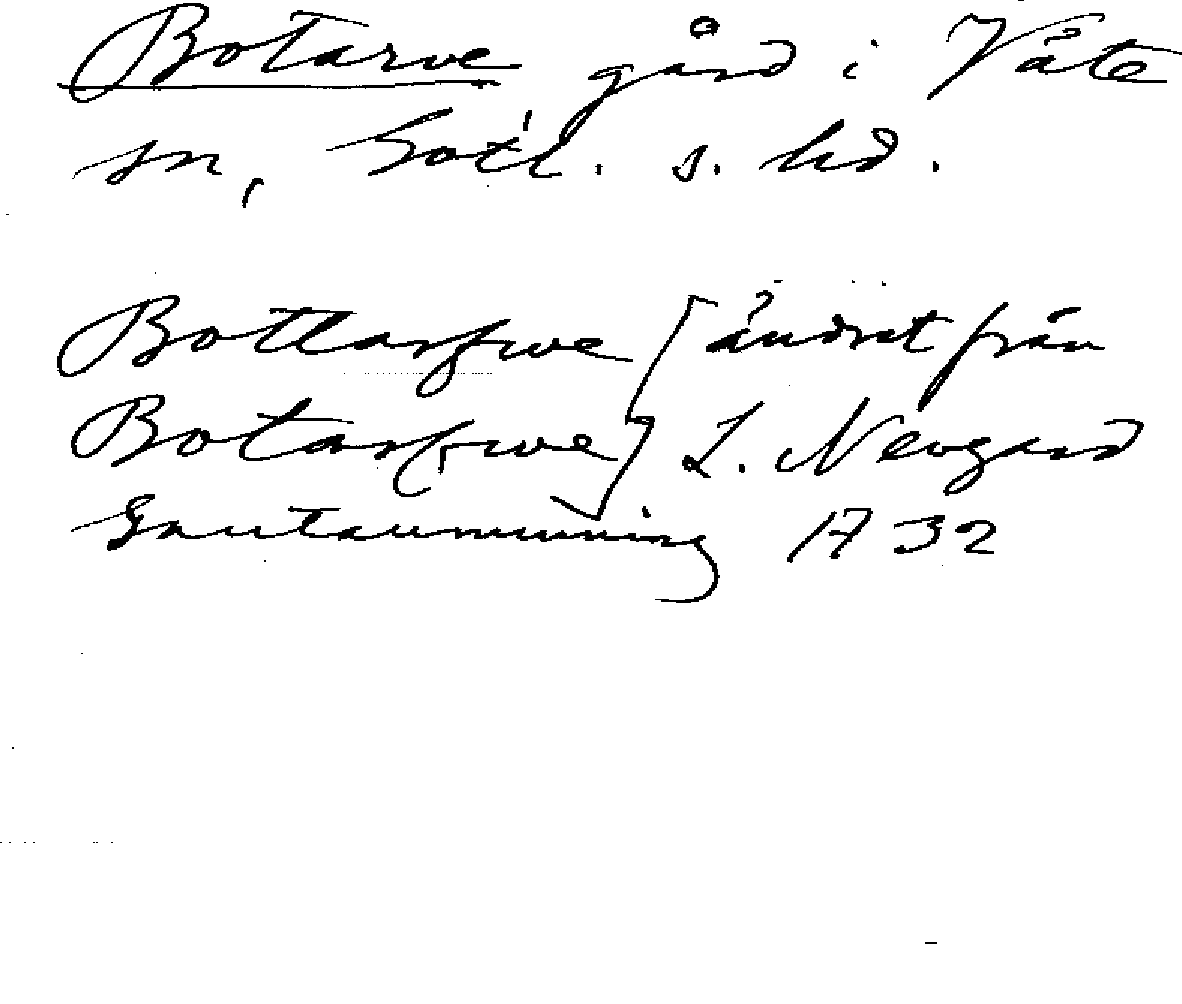 Botarve gård i Väte
sn, Gotl. s. hd.
Botlarfwe [ändrat från
Botarfwe] L. Nevgard
Gautaumming 1732